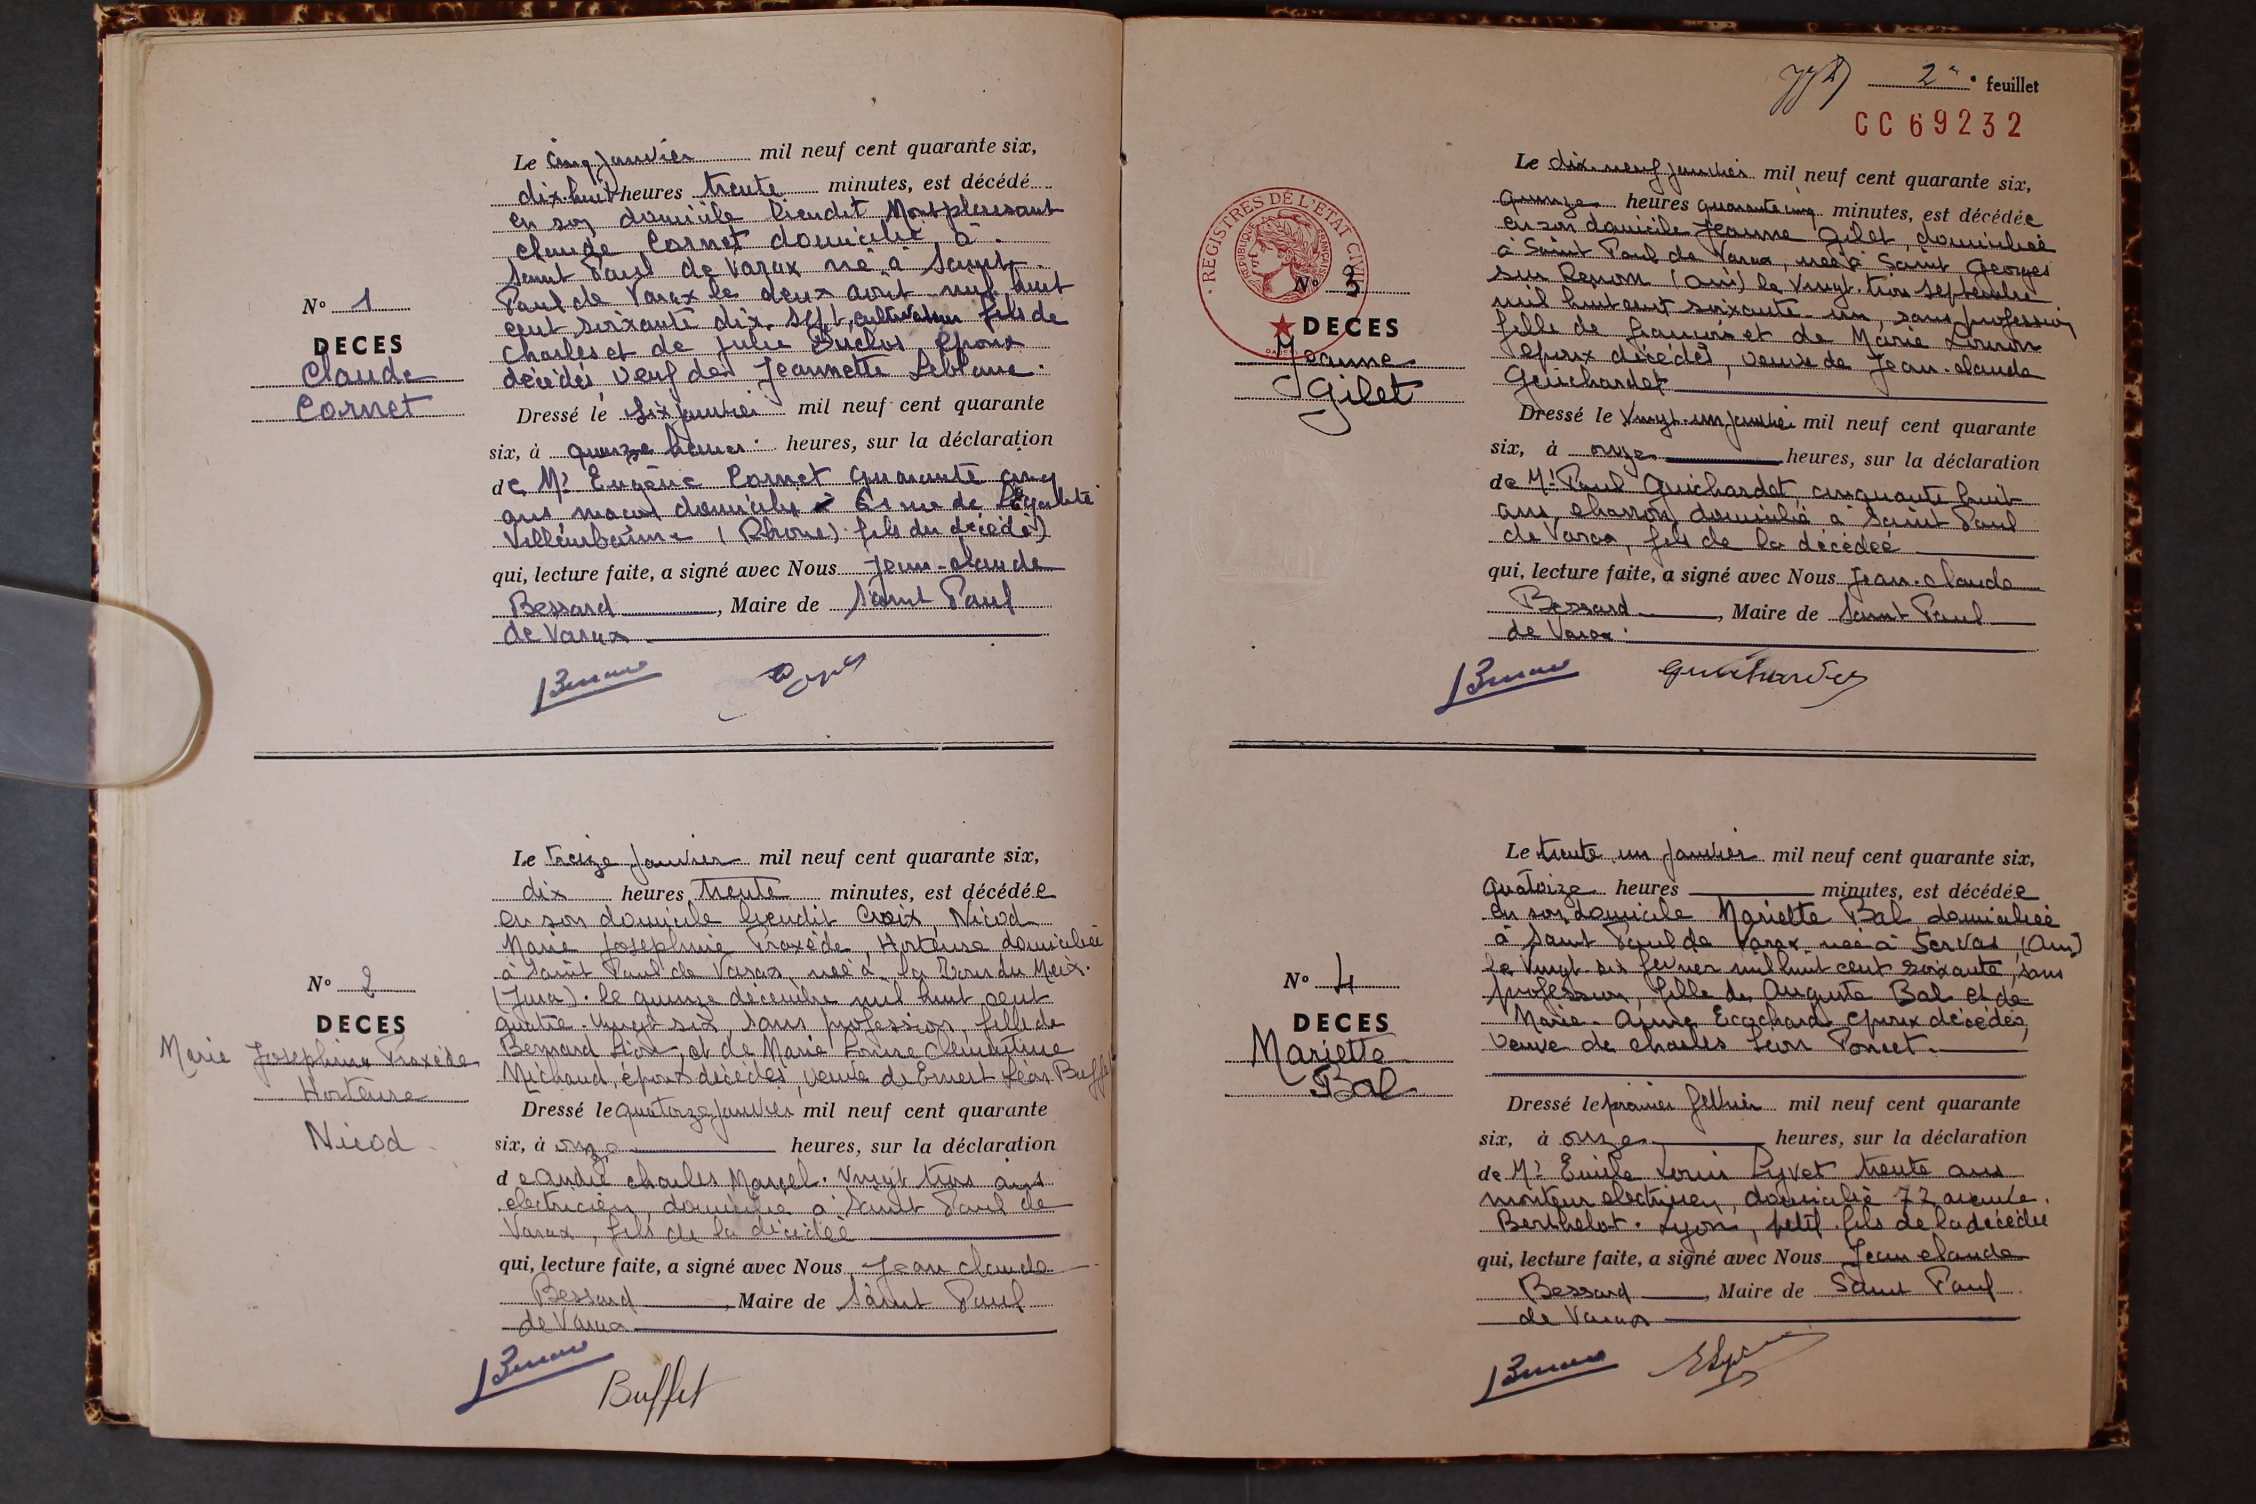 Le cinq janvier mil neuf cent quarante six,
dix-huit heures trente minutes, est décédé
en son domicile lieudit Montplaisant
Claude Cornet domicilié à
Saint Paul de Varax né à Saint
Paul de Varax le deux aout mil huit
cent soixante dix sept, cultivateur fils de
Charles et de Julie Duclos époux
décédés veuf de Jeannette Leblanc.
N° 1
DECES
Claude
Cornet
Dressé le six janvier mil neuf cent quarante
six, à quinze heures heures, sur la déclaration
de Mr Eugène Cornet quarante cinq
ans maçon domicilié 61 rue de l'Egalité
Villeurbanne (Rhone) fils du décédé
qui, lecture faite, a signé avec Nous Jean-claude
Bessard, Maire de Saint Paul
de Varax
Le treize janvier mil neuf cent quarante six,
dix heures trente minutes, est décédée
en son domicile lieudit Croix, Nicod
Marie Josephine Praxède, Hortense domiciliée
à Saint Paul de Varax, née à la Tour du Meix.
(Jura). le quinze décembre mil huit cent
quatre-vingt six, sans profession, fille de
Bernard Léon, et de Marie Louise Clémentine
Michaud, époux décédés, veuve de Ernest Léon Buffet
N° 2
DECES
Marie Josephine Praxède
Hortense
Nicod
Dressé le quatorze janvier mil neuf cent quarante
six, à onze heures, sur la déclaration
de André charles Marcel. vingt trois ans
electricien, domicilié à Saint Paul de
Varax, fils de la décédée
qui, lecture faite, a signé avec Nous Jean claude
Bessard, Maire de Saint Paul
de Varax
Buffet
2e feuillet
CC 69232
Le dix-neuf janvier mil neuf cent quarante six,
quinze heures quarante cinq minutes, est décédée
en son domicile Jeanne Gilet, domiciliée
à Saint Paul de Varax, née à Saint Georges
sur Renon (Ain) le vingt-trois septembre
mil huit cent soixante-un, sans profession
fille de françois et de Marie
époux décédés, veuve de Jean-claude
Guichardot
REGISTRES DE L'ETAT CIVIL
REPUBLIQUE FRANÇAISE
N° 3
DECES
Jeanne
Gilet
Dressé le vingt-un janvier mil neuf cent quarante
six, à onze heures, sur la déclaration
de Mr Paul Guichardot, cinquante huit
ans, charron domicilié à Saint Paul
de Varax, fils de la décédée
qui, lecture faite, a signé avec Nous Jean-claude
Bessard, Maire de Saint Paul
de Varax.
Le trente un janvier mil neuf cent quarante six,
quatorze heures minutes, est décédée
en son domicile Mariette Bal domiciliée
à Saint Paul de Varax née à Servas (Ain)
le vingt-six fevrier mil huit cent soixante, sans
profession, fille de Auguste Bal et de
Marie-Aimé Ecochard époux décédés,
veuve de charles Léon Poncet.
N° 4
DECES
Mariette
Bal
Dressé le premier fevrier mil neuf cent quarante
six, à onze heures, sur la déclaration
de Mr Emile Louis Lyvet trente ans
monteur electricien, domicilié 72 avenue
Berthelot. Lyon, petit-fils de la décédée
qui, lecture faite, a signé avec Nous Jean claude
Bessard, Maire de Saint Paul
de Varax